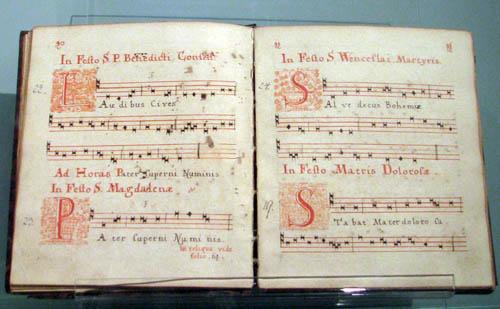 In Festo S. P. Benedicti
L Au dibus Cives
Ad Horas Pater Superni Numinis
In Festo S. Magdalenæ
P A ter superni Numi nis.
reliqua vide
folio.
In Festo S. Wenceslai Martyris.
S Al ve decus Bohemiæ
In Festo Matris Dolorosæ
S Ta bat Mater doloro sa.